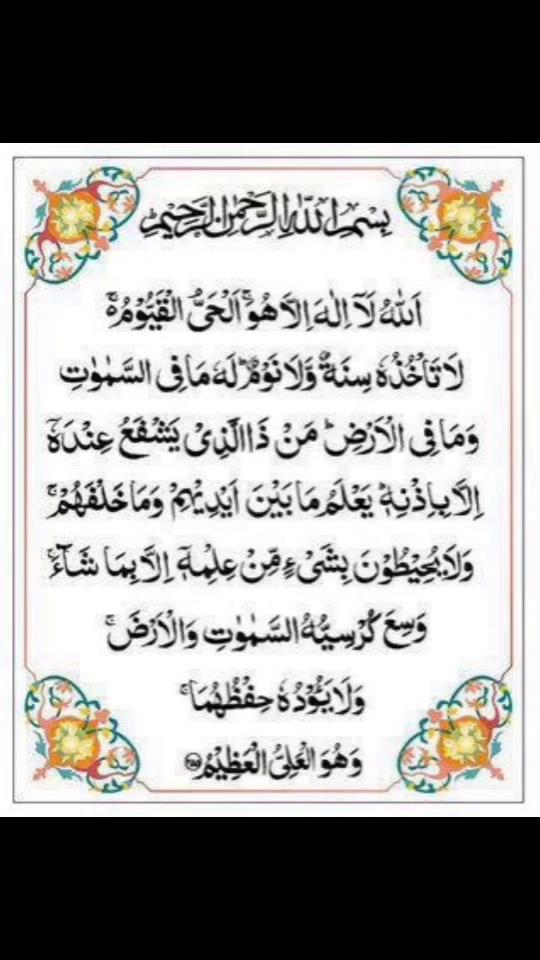 بِسْمِ اللّٰهِ الرَّحْمٰنِ الرَّحِيْمِ
اَللّٰهُ لَآ اِلٰهَ اِلَّا هُوَ ۚ اَلْحَىُّ الْقَيُّوْمُ ۚ
لَا تَاْخُذُهٗ سِنَةٌ وَّلَا نَوْمٌ ؕ لَهٗ مَا فِى السَّمٰوٰتِ
وَمَا فِى الْاَرْضِ ؕ مَنْ ذَا الَّذِىْ يَشْفَعُ عِنْدَهٗۤ
اِلَّا بِاِذْنِهٖ ؕ يَعْلَمُ مَا بَيْنَ اَيْدِيْهِمْ وَمَا خَلْفَهُمْ ۚ
وَلَا يُحِيْطُوْنَ بِشَىْءٍ مِّنْ عِلْمِهٖۤ اِلَّا بِمَا شَآءَ ۚ
وَسِعَ كُرْسِيُّهُ السَّمٰوٰتِ وَالْاَرْضَ ۚ
وَلَا يَـُٔوْدُهٗ حِفْظُهُمَا ۚ
وَهُوَ الْعَلِىُّ الْعَظِيْمُ ﴿۲۵۵﴾